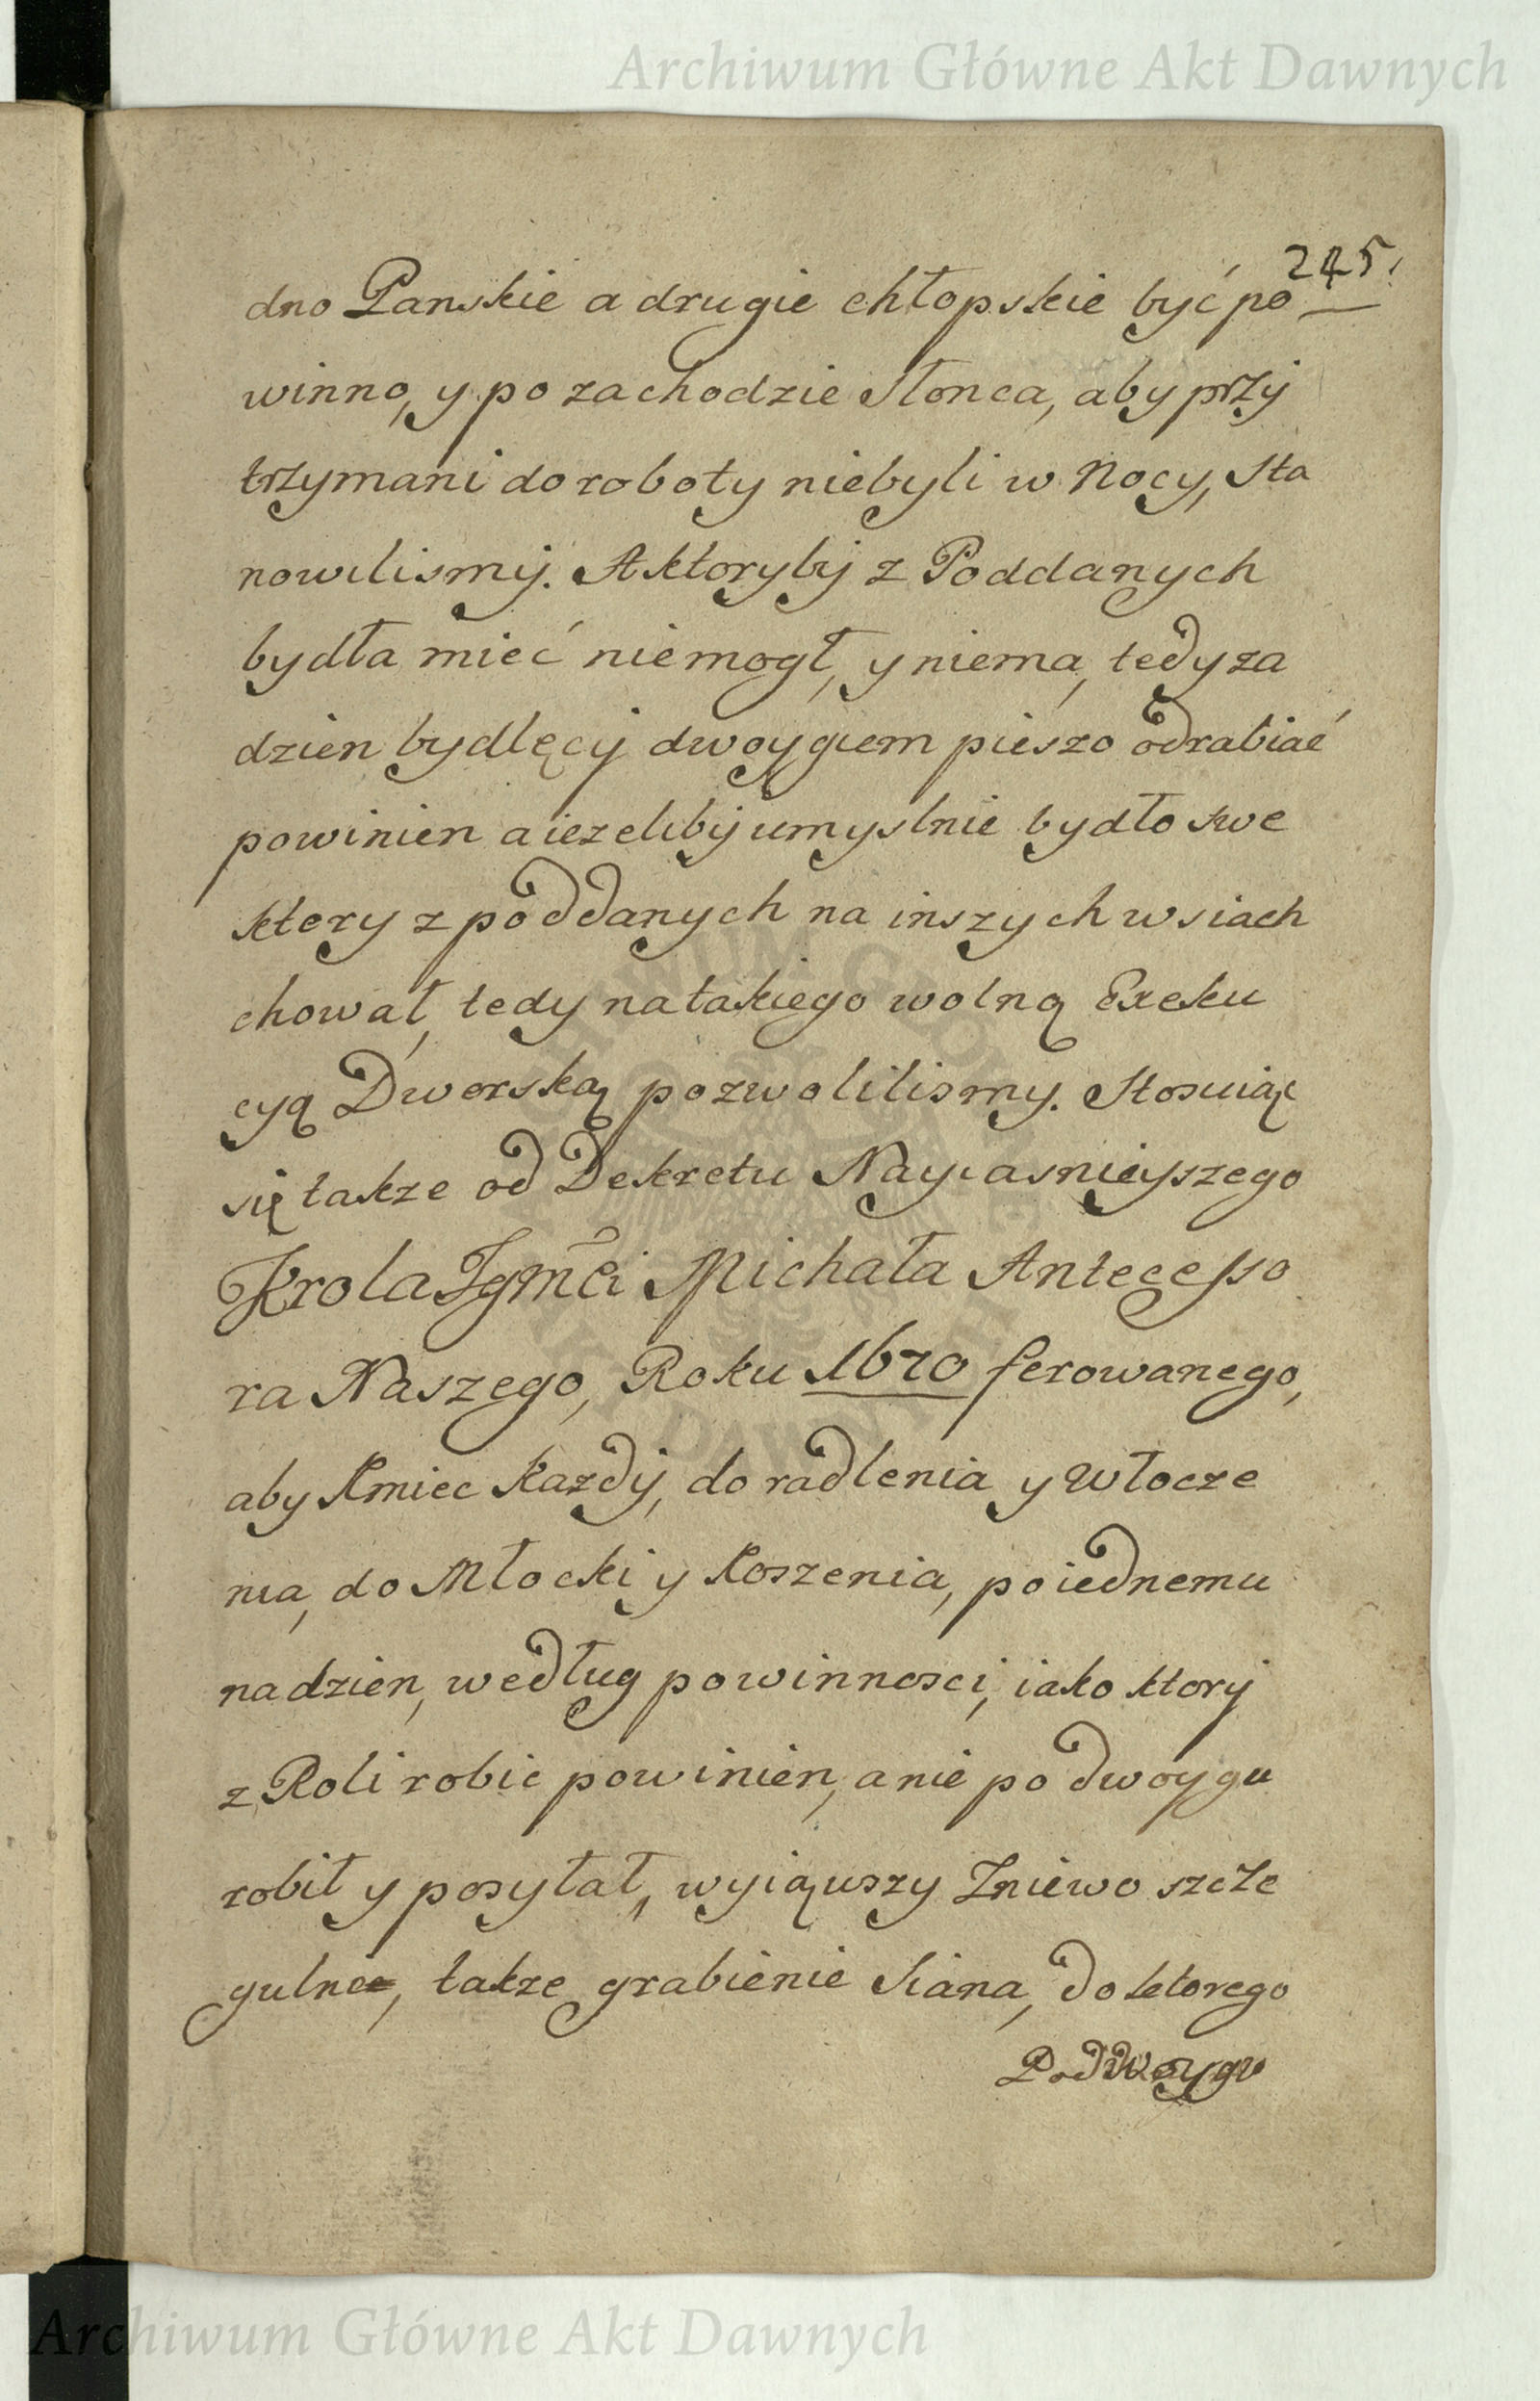 Archiwum Główne Akt Dawnych
245.
dno Panskie a drugie chłopskie być po
winno, y po zachodzie Słonca, aby przÿ
trzymani do roboty niebyli w Nocy, Sta
nowilismÿ. A ktorybÿ z Poddanych
bydła mieć niemogł, y niema, tedy za
dzien bydlęcÿ dwoygiem pieszo odrabiać
powinien a iezelibÿ umyslnie bydło swe
ktory z poddanych na inszych wsiach
chował, tedy natakiego wolną Exeku
cyą Dworską pozwolilismy. Stosuiąc
się takze od Dekretu Nayiasnieyszego
Krola Jgmci Michała Antecesso
ra Naszego, Roku 1670 ferowanego,
aby Kmiec Kazdÿ, do radlenia y Włocze
nia, do Młocki y Koszenia, po iednemu
na dzien, według powinnosci, iako ktorÿ
z Roli robic powinien, a nie po dwoygu
robił y posyłał, wyiąwszy Zniwo szcze
gulnie, takze grabienie Siana, do ktorego
Podwoygu
Archiwum Główne Akt Dawnych